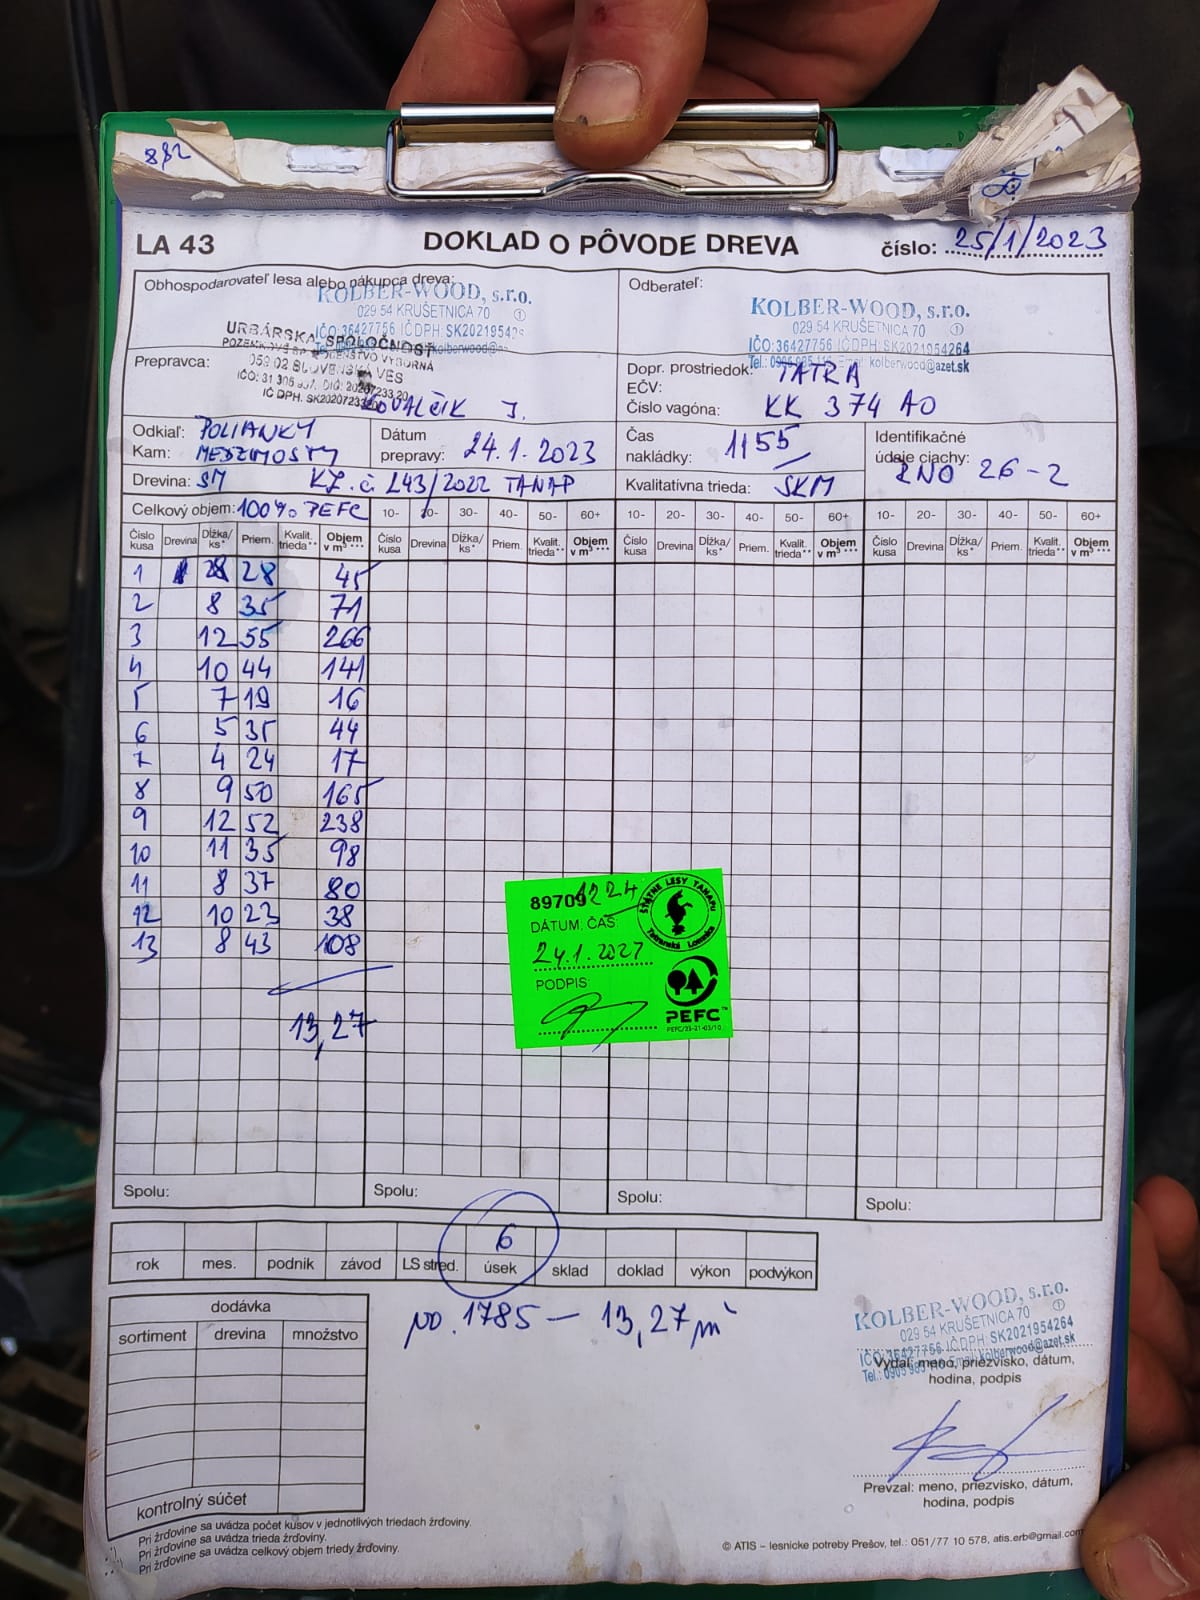 882
LA 43 DOKLAD O PÔVODE DREVA číslo: 25/1/2023
Obhospodarovateľ lesa alebo nákupca dreva:
KOLBER-WOOD, s.r.o.
029 54 KRUŠETNICA 70 ①
IČO: 36427756 IČ DPH: SK202195426
URBÁRSKA SPOLOČNOSŤ
059 02 SLOVENSKÁ VES
IČ DPH: SK20207233
Odberateľ:
KOLBER-WOOD, s.r.o.
029 54 KRUŠETNICA 70 ①
IČO: 36427756 IČ DPH: SK2021954264
kolberwood@azet.sk
Prepravca: KOVALČIK J.
Dopr. prostriedok: TATRA
EČV:
Číslo vagóna: KK 374 AO
Odkiaľ: POLIANKY
Kam: MEDZIMOSTY
Dátum prepravy: 24.1.2023
Čas nakládky: 1155
Identifikačné údaje ciachy: RNO 26-2
Drevina: SM KZ.č. L43/2022 TANAP
Kvalitatívna trieda: SKM
Celkový objem: 100% PEFC 10- 20- 30- 40- 50- 60+ 10- 20- 30- 40- 50- 60+ 10- 20- 30- 40- 50- 60+
Číslo kusa Drevina Dĺžka/ks* Priem. Kvalit. trieda** Objem v m³*** Číslo kusa Drevina Dĺžka/ks* Priem. Kvalit. trieda** Objem v m³*** Číslo kusa Drevina Dĺžka/ks* Priem. Kvalit. trieda** Objem v m³*** Číslo kusa Drevina Dĺžka/ks* Priem. Kvalit. trieda** Objem v m³***
1 28 45
2 8 35 71
3 12 55 266
4 10 44 141
5 7 19 16
6 5 35 44
7 4 24 17
8 9 50 165
9 12 52 238
10 11 35 98
11 8 37 80
12 10 23 38
13 8 43 108
13,27
89709 1224
DÁTUM, ČAS:
24.1.2027
PODPIS:
ŠTÁTNE LESY TANAPu
Tatranská Lomnica
PEFC™
PEFC/23-21-03/10
Spolu: Spolu: Spolu: Spolu:
6
rok mes. podnik závod LS stred. úsek sklad doklad výkon podvýkon
po. 1785 – 13,27 m³
dodávka
sortiment drevina množstvo
kontrolný súčet
KOLBER-WOOD, s.r.o.
029 54 KRUŠETNICA 70 ①
IČO: 36427756 IČ DPH: SK2021954264
kolberwood@azet.sk
Vydal: meno, priezvisko, dátum,
hodina, podpis
Prevzal: meno, priezvisko, dátum,
hodina, podpis
Pri žrďovine sa uvádza počet kusov v jednotlivých triedach žrďoviny.
Pri žrďovine sa uvádza trieda žrďoviny.
Pri žrďovine sa uvádza celkový objem triedy žrďoviny.
© ATIS – lesnícke potreby Prešov, tel.: 051/77 10 578, atis.erb@gmail.com